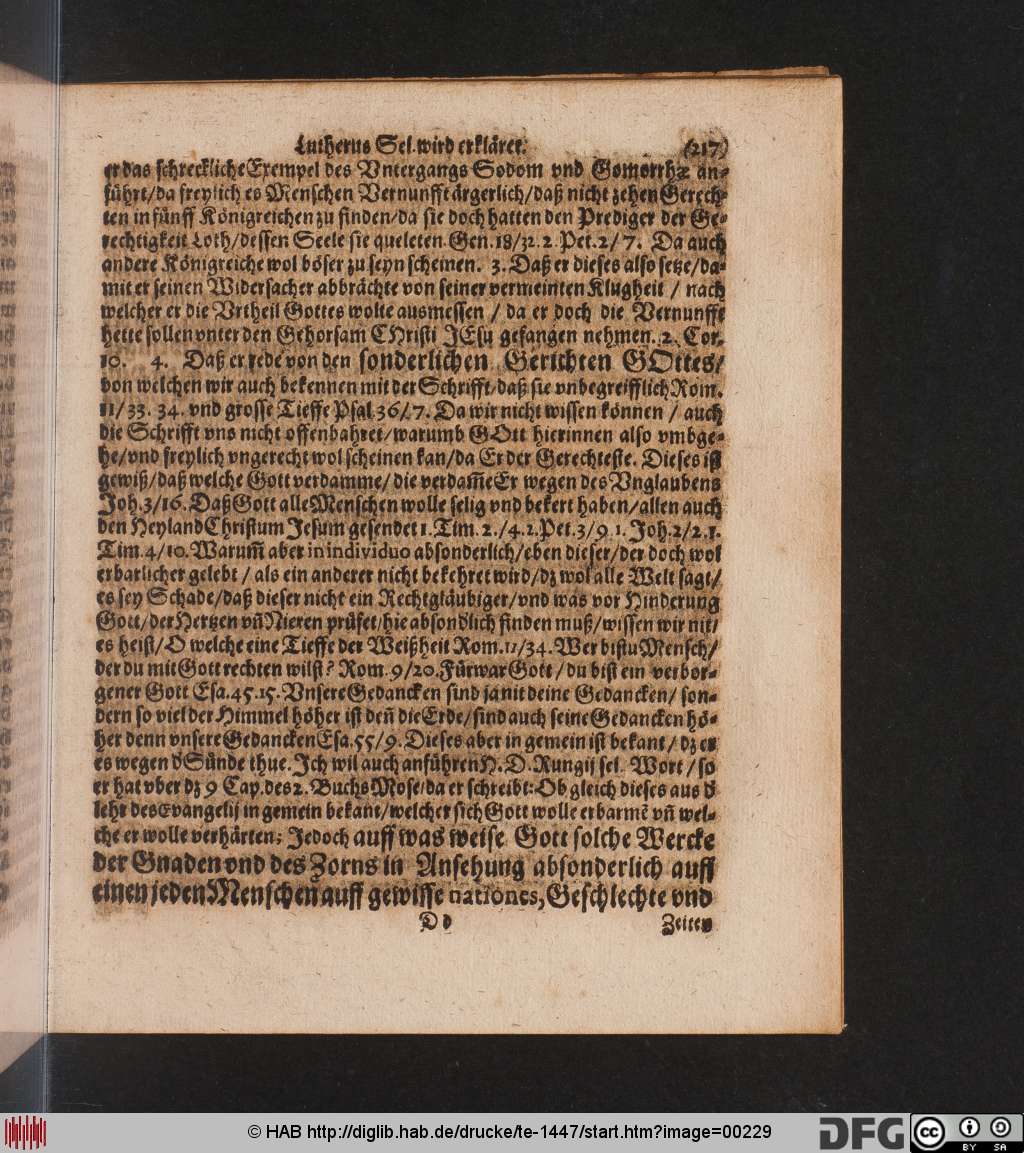 Lutherus Sel. wird erkläret. (217)
er das schreckliche Exempel des Vntergangs Sodom vnd Gomorrhæ an-
führt/da freylich es Menschen Vernunfft ärgerlich/daß nicht zehen Gerech-
ten in fünff Königreichen zu finden/da sie doch hatten den Prediger der Ge-
rechtigkeit Loth/dessen Seele sie queleten. Gen. 18/32. 2. Pet. 2/7. Da auch
andere Königreiche wol böser zu seyn scheinen. 3. Daß er dieses also setze/da-
mit er seinen Widersacher abbrächte von seiner vermeinten Klugheit / nach
welcher er die Vrtheil Gottes wolte ausmessen / da er doch die Vernunfft
hette sollen vnter den Gehorsam CHristi JEsu gefangen nehmen. 2. Cor.
10. 4. Daß er rede von den sonderlichen Gerichten GOttes/
von welchen wir auch bekennen mit der Schrifft/daß sie vnbegreifflich Rom.
11/33. 34. vnd grosse Tieffe Psal. 36/7. Da wir nicht wissen können / auch
die Schrifft vns nicht offenbahret/warumb GOtt hierinnen also vmbge-
he/vnd freylich vngerecht wol scheinen kan/da Er der Gerechteste. Dieses ist
gewiß/daß welche Gott verdamme/die verdam̃e Er wegen des Vnglaubens
Joh. 3/16. Daß Gott alle Menschen wolle selig vnd bekert haben/allen auch
den Heyland Christum Jesum gesendet 1. Tim. 2./4. 2. Pet. 3/9 1. Joh. 2/2. 1.
Tim. 4/10. Warum̃ aber in individuo absonderlich/eben dieser/der doch wol
erbarlicher gelebt / als ein anderer nicht bekehret wird/dz wol alle Welt sagt/
es sey Schade/daß dieser nicht ein Rechtgläubiger/vnd was vor Hinderung
Gott/der Hertzen vñ Nieren prüfet/hie absondlich finden muß/wissen wir nit/
es heist/O welche eine Tieffe der Weißheit Rom. 11/34. Wer bistu Mensch/
der du mit Gott rechten wilst? Rom. 9/20. Fürwar Gott / du bist ein verbor-
gener Gott Esa. 45. 15. Vnsere Gedancken sind ja nit deine Gedancken/ son-
dern so viel der Himmel höher ist deñ die Erde/sind auch seine Gedancken hö-
her denn vnsere Gedancken Esa. 55/9. Dieses aber in gemein ist bekant/ dz er
es wegen d' Sünde thue. Ich wil auch anführen H. D. Rungij sel. Wort / so
er hat vber dz 9 Cap. des 2. Buchs Mose/da er schreibt: Ob gleich dieses aus d'
lehr des Evangelij in gemein bekant/welcher sich Gott wolle erbarmẽ vñ wel-
che er wolle verhärten; Jedoch auff was weise Gott solche Wercke
der Gnaden vnd des Zorns in Ansehung absonderlich auff
einen jeden Menschen auff gewisse nationes, Geschlechte vnd
D d Zeiten
© HAB http://diglib.hab.de/drucke/te-1447/start.htm?image=00229
DFG cc BY SA